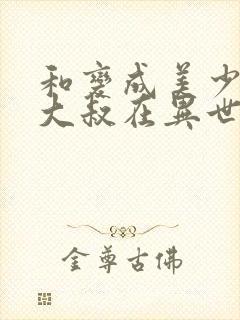 和變成美少
大叔在異世
金尊古佛